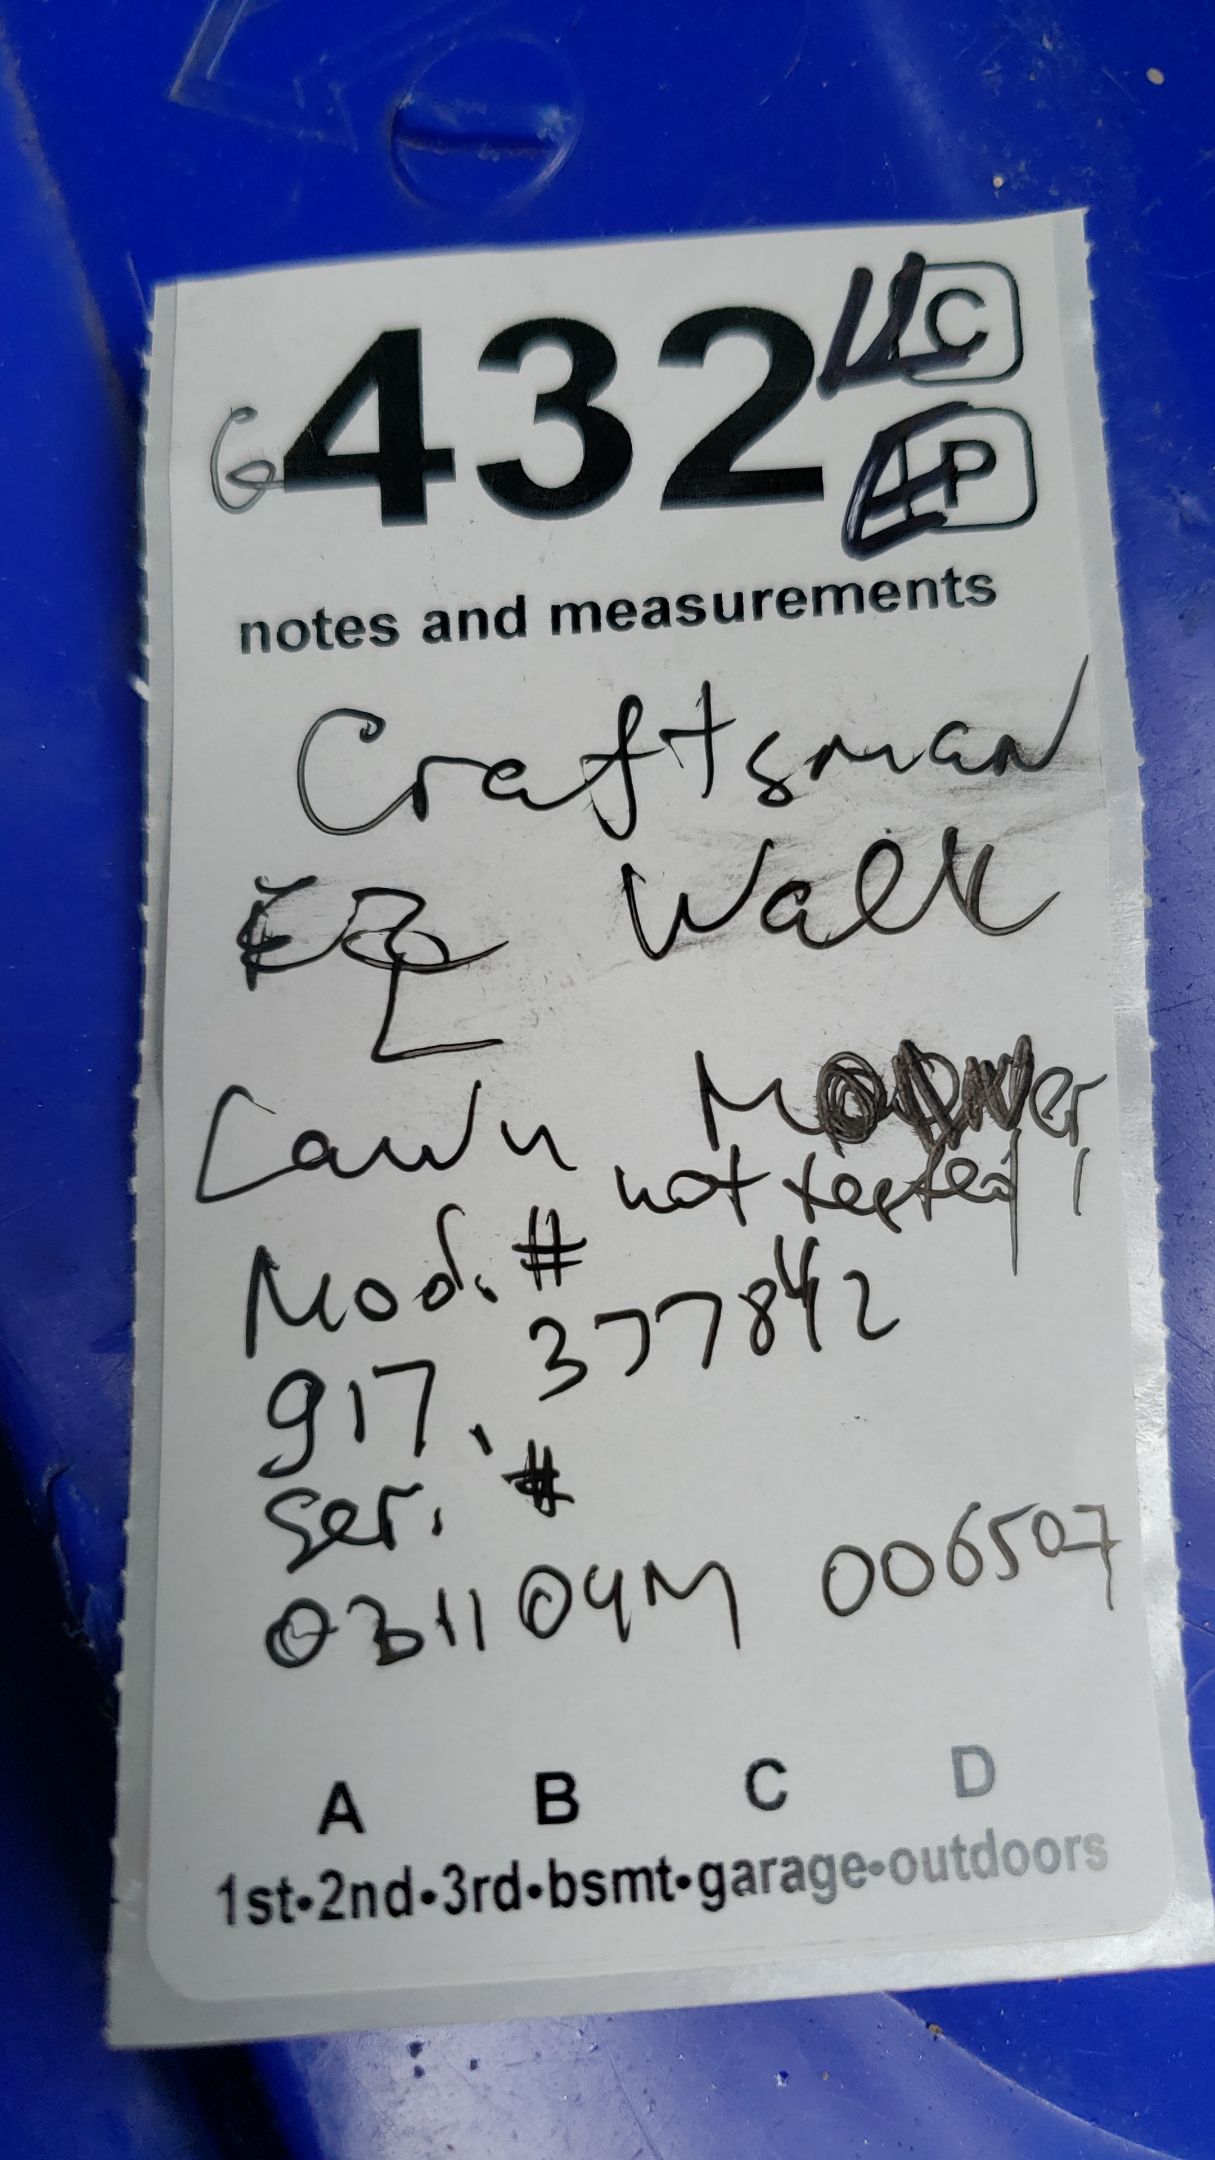 G432 C
P
notes and measurements
Craftsman
EZ Walk
Lawn Mower
not tested!
Mod. #
917.377842
Ser. #
031104M 006507
A B C D
1st•2nd•3rd•bsmt•garage•outdoors